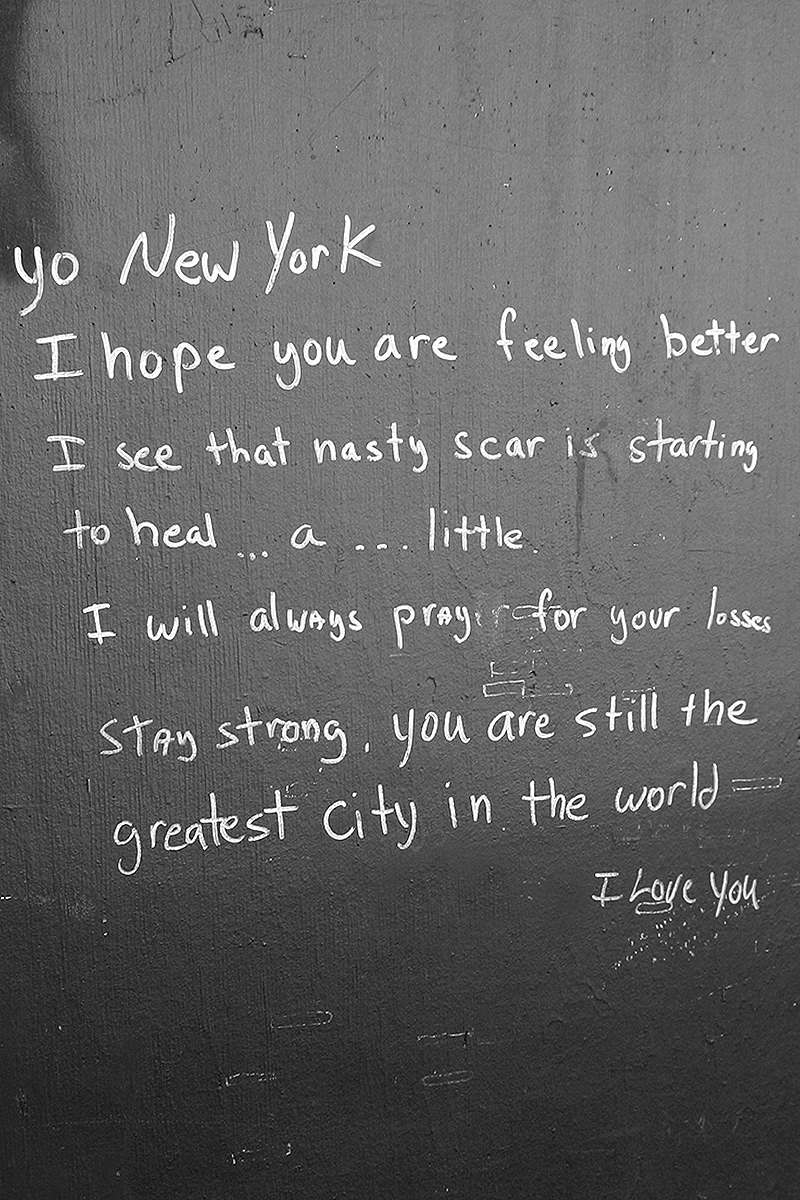 yo New York
I hope you are feeling better
I see that nasty scar is starting
to heal ... a ... little.
I will always pray for your losses
stay strong. you are still the
greatest city in the world
I Love You